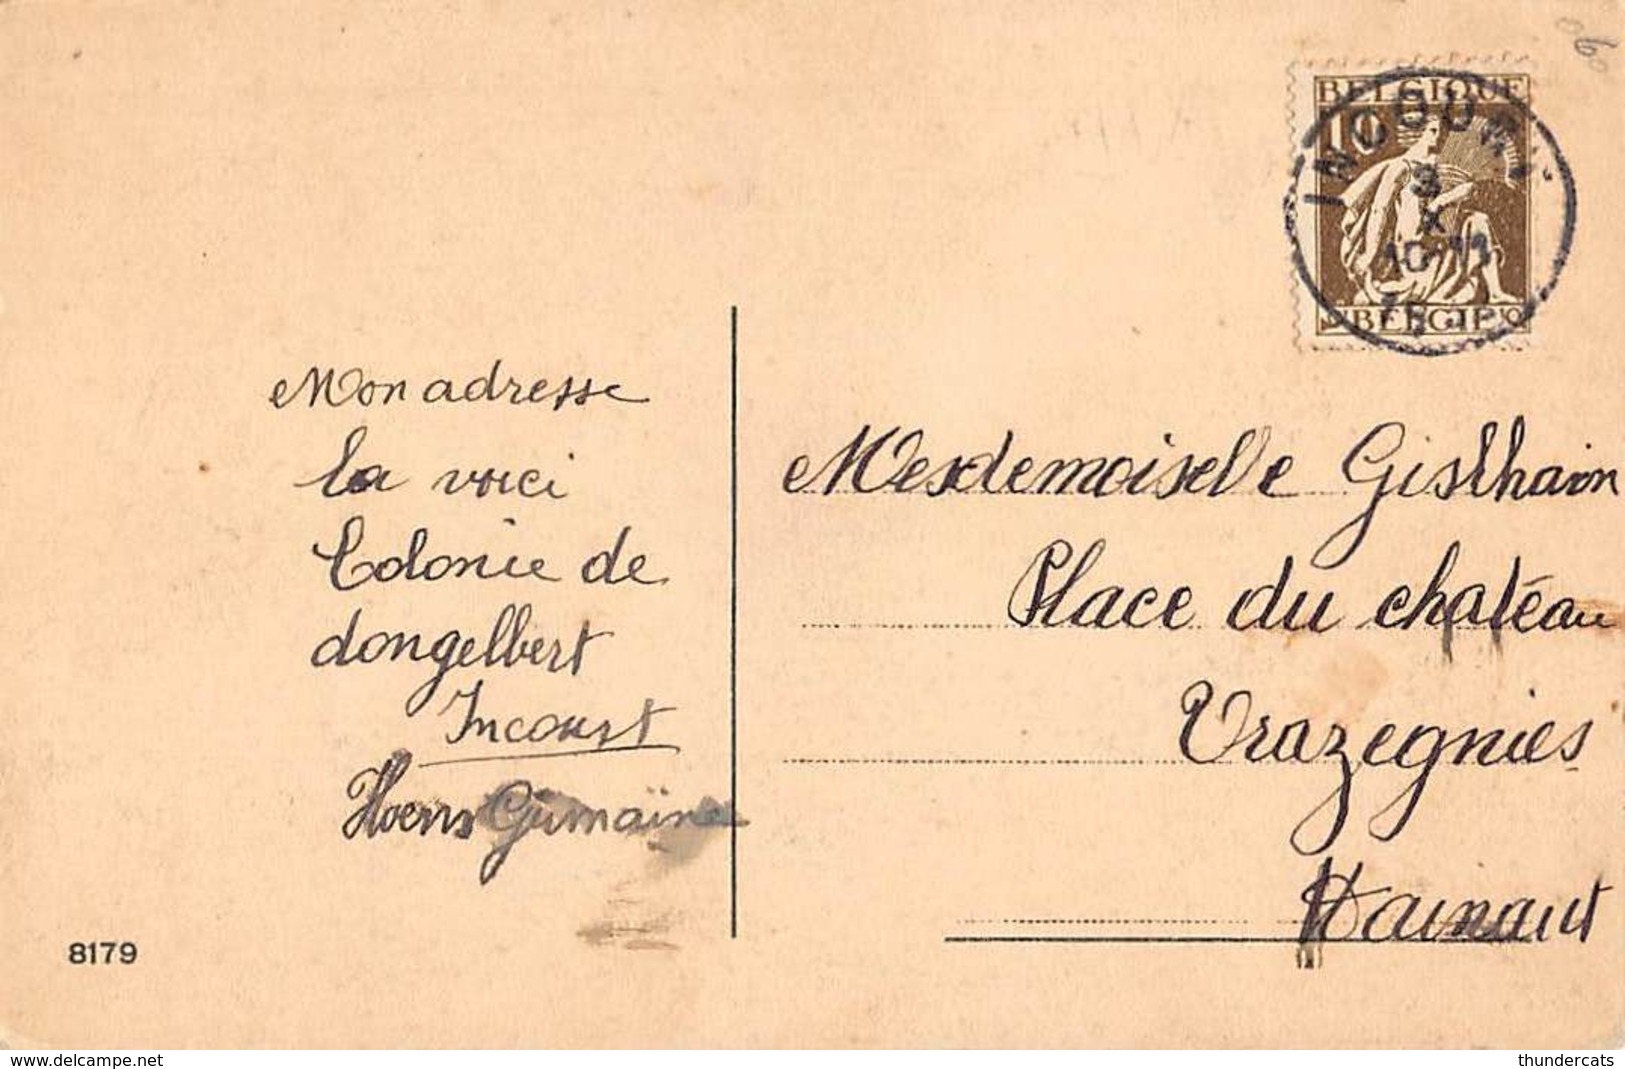 BELGIQUE
10
INCOURT
3
X
10-11
BELGIE
Mon adresse
la voici
Colonie de
dongelbert
Incourt
Hoens Germaine
Mesdemoiselle Gislhain
Place du chatéau
Trazegnies
Hainaut
8179
delcampe.net
thundercats